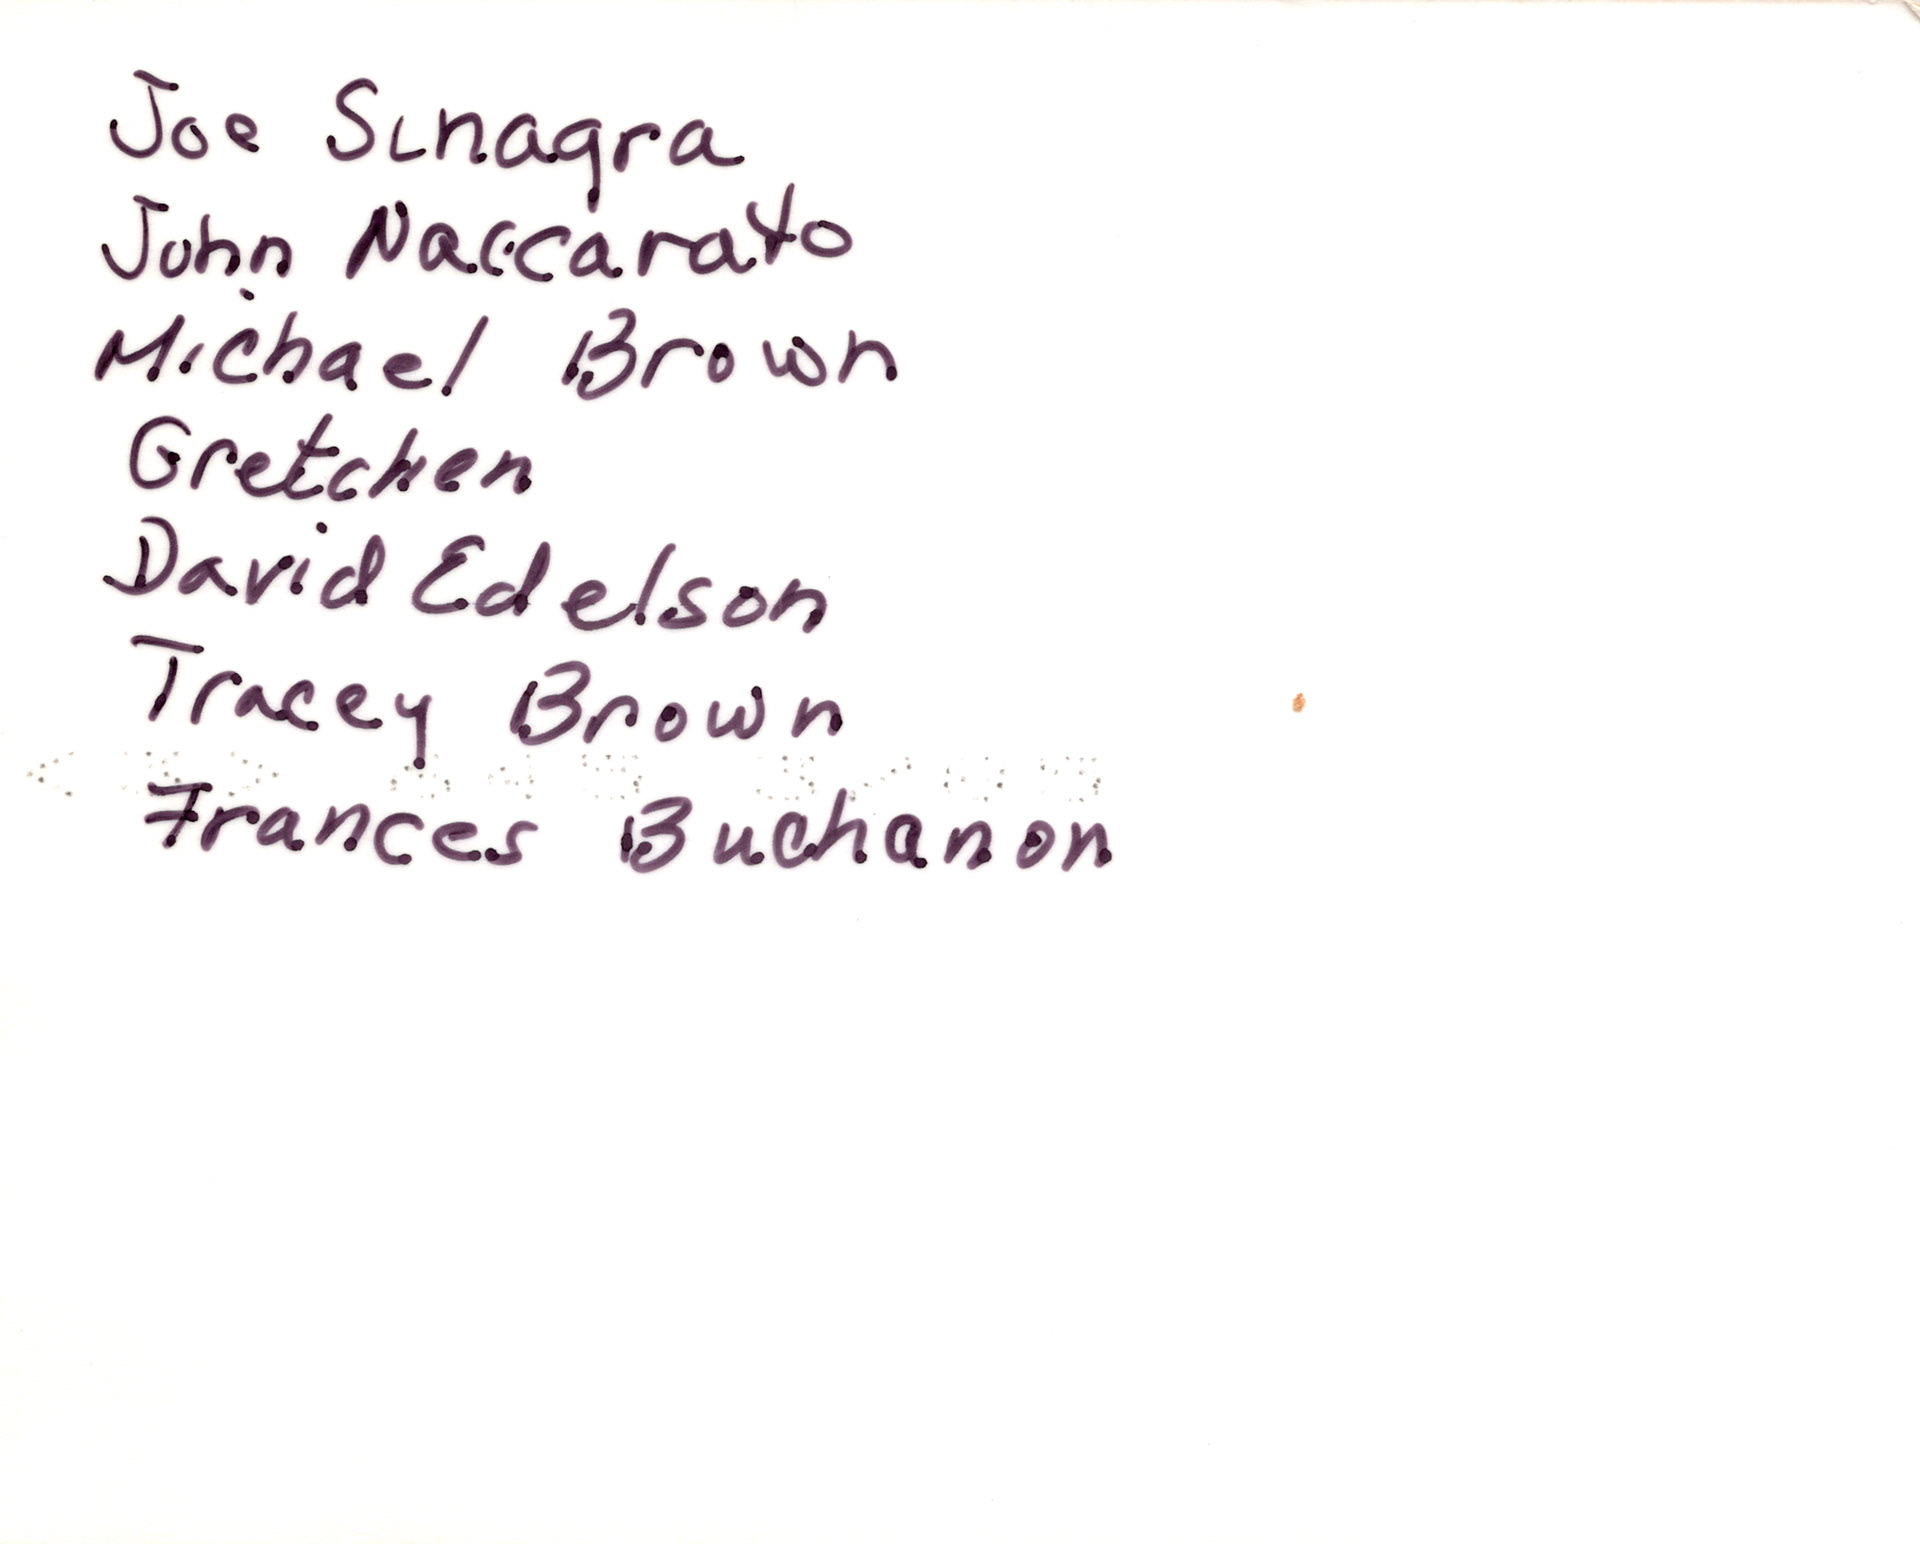 Joe Sinagra
John Naccarato
Michael Brown
Gretchen
David Edelson
Tracey Brown
Frances Buchanon